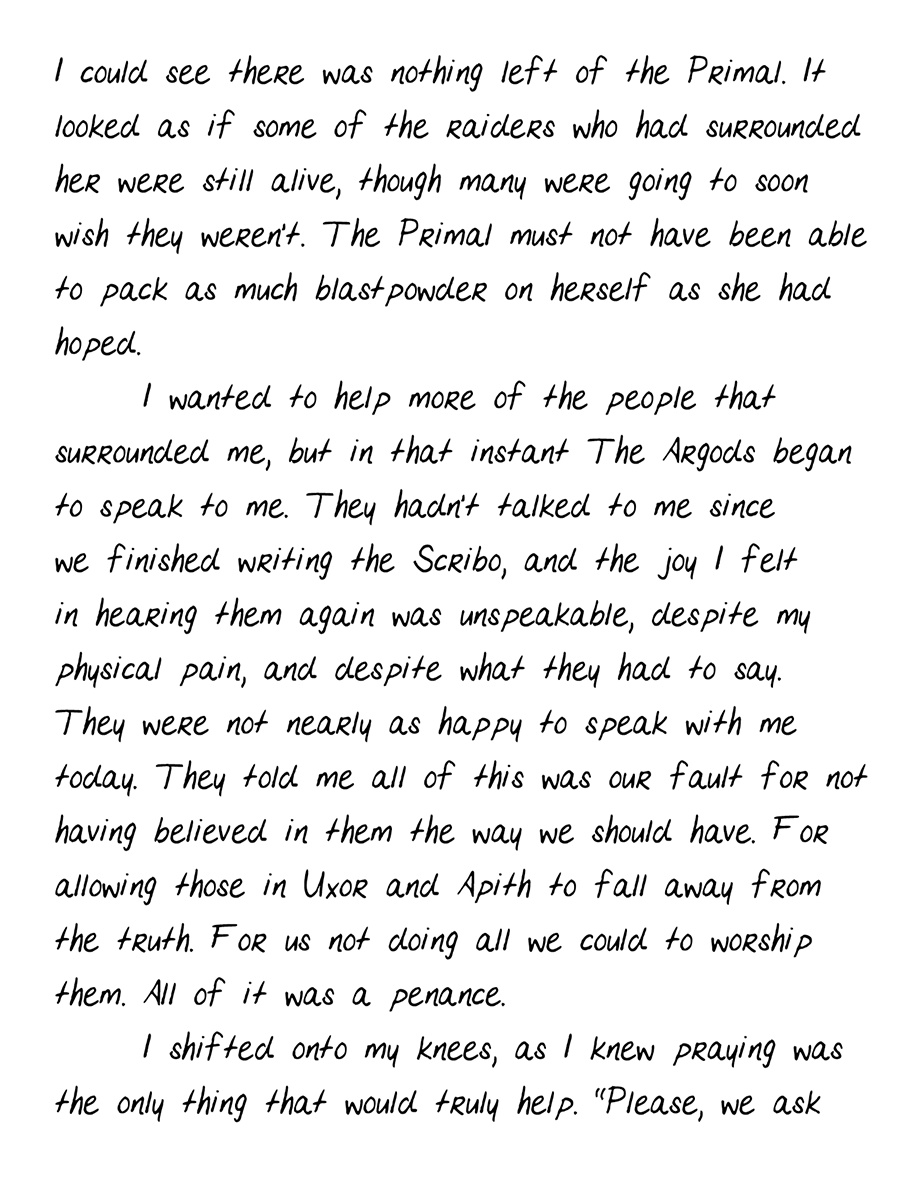 I could see there was nothing left of the Primal. It
looked as if some of the raiders who had surrounded
her were still alive, though many were going to soon
wish they weren't. The Primal must not have been able
to pack as much blastpowder on herself as she had
hoped.
I wanted to help more of the people that
surrounded me, but in that instant The Argods began
to speak to me. They hadn't talked to me since
we finished writing the Scribo, and the joy I felt
in hearing them again was unspeakable, despite my
physical pain, and despite what they had to say.
They were not nearly as happy to speak with me
today. They told me all of this was our fault for not
having believed in them the way we should have. For
allowing those in Uxor and Apith to fall away from
the truth. For us not doing all we could to worship
them. All of it was a penance.
I shifted onto my knees, as I knew praying was
the only thing that would truly help. "Please, we ask